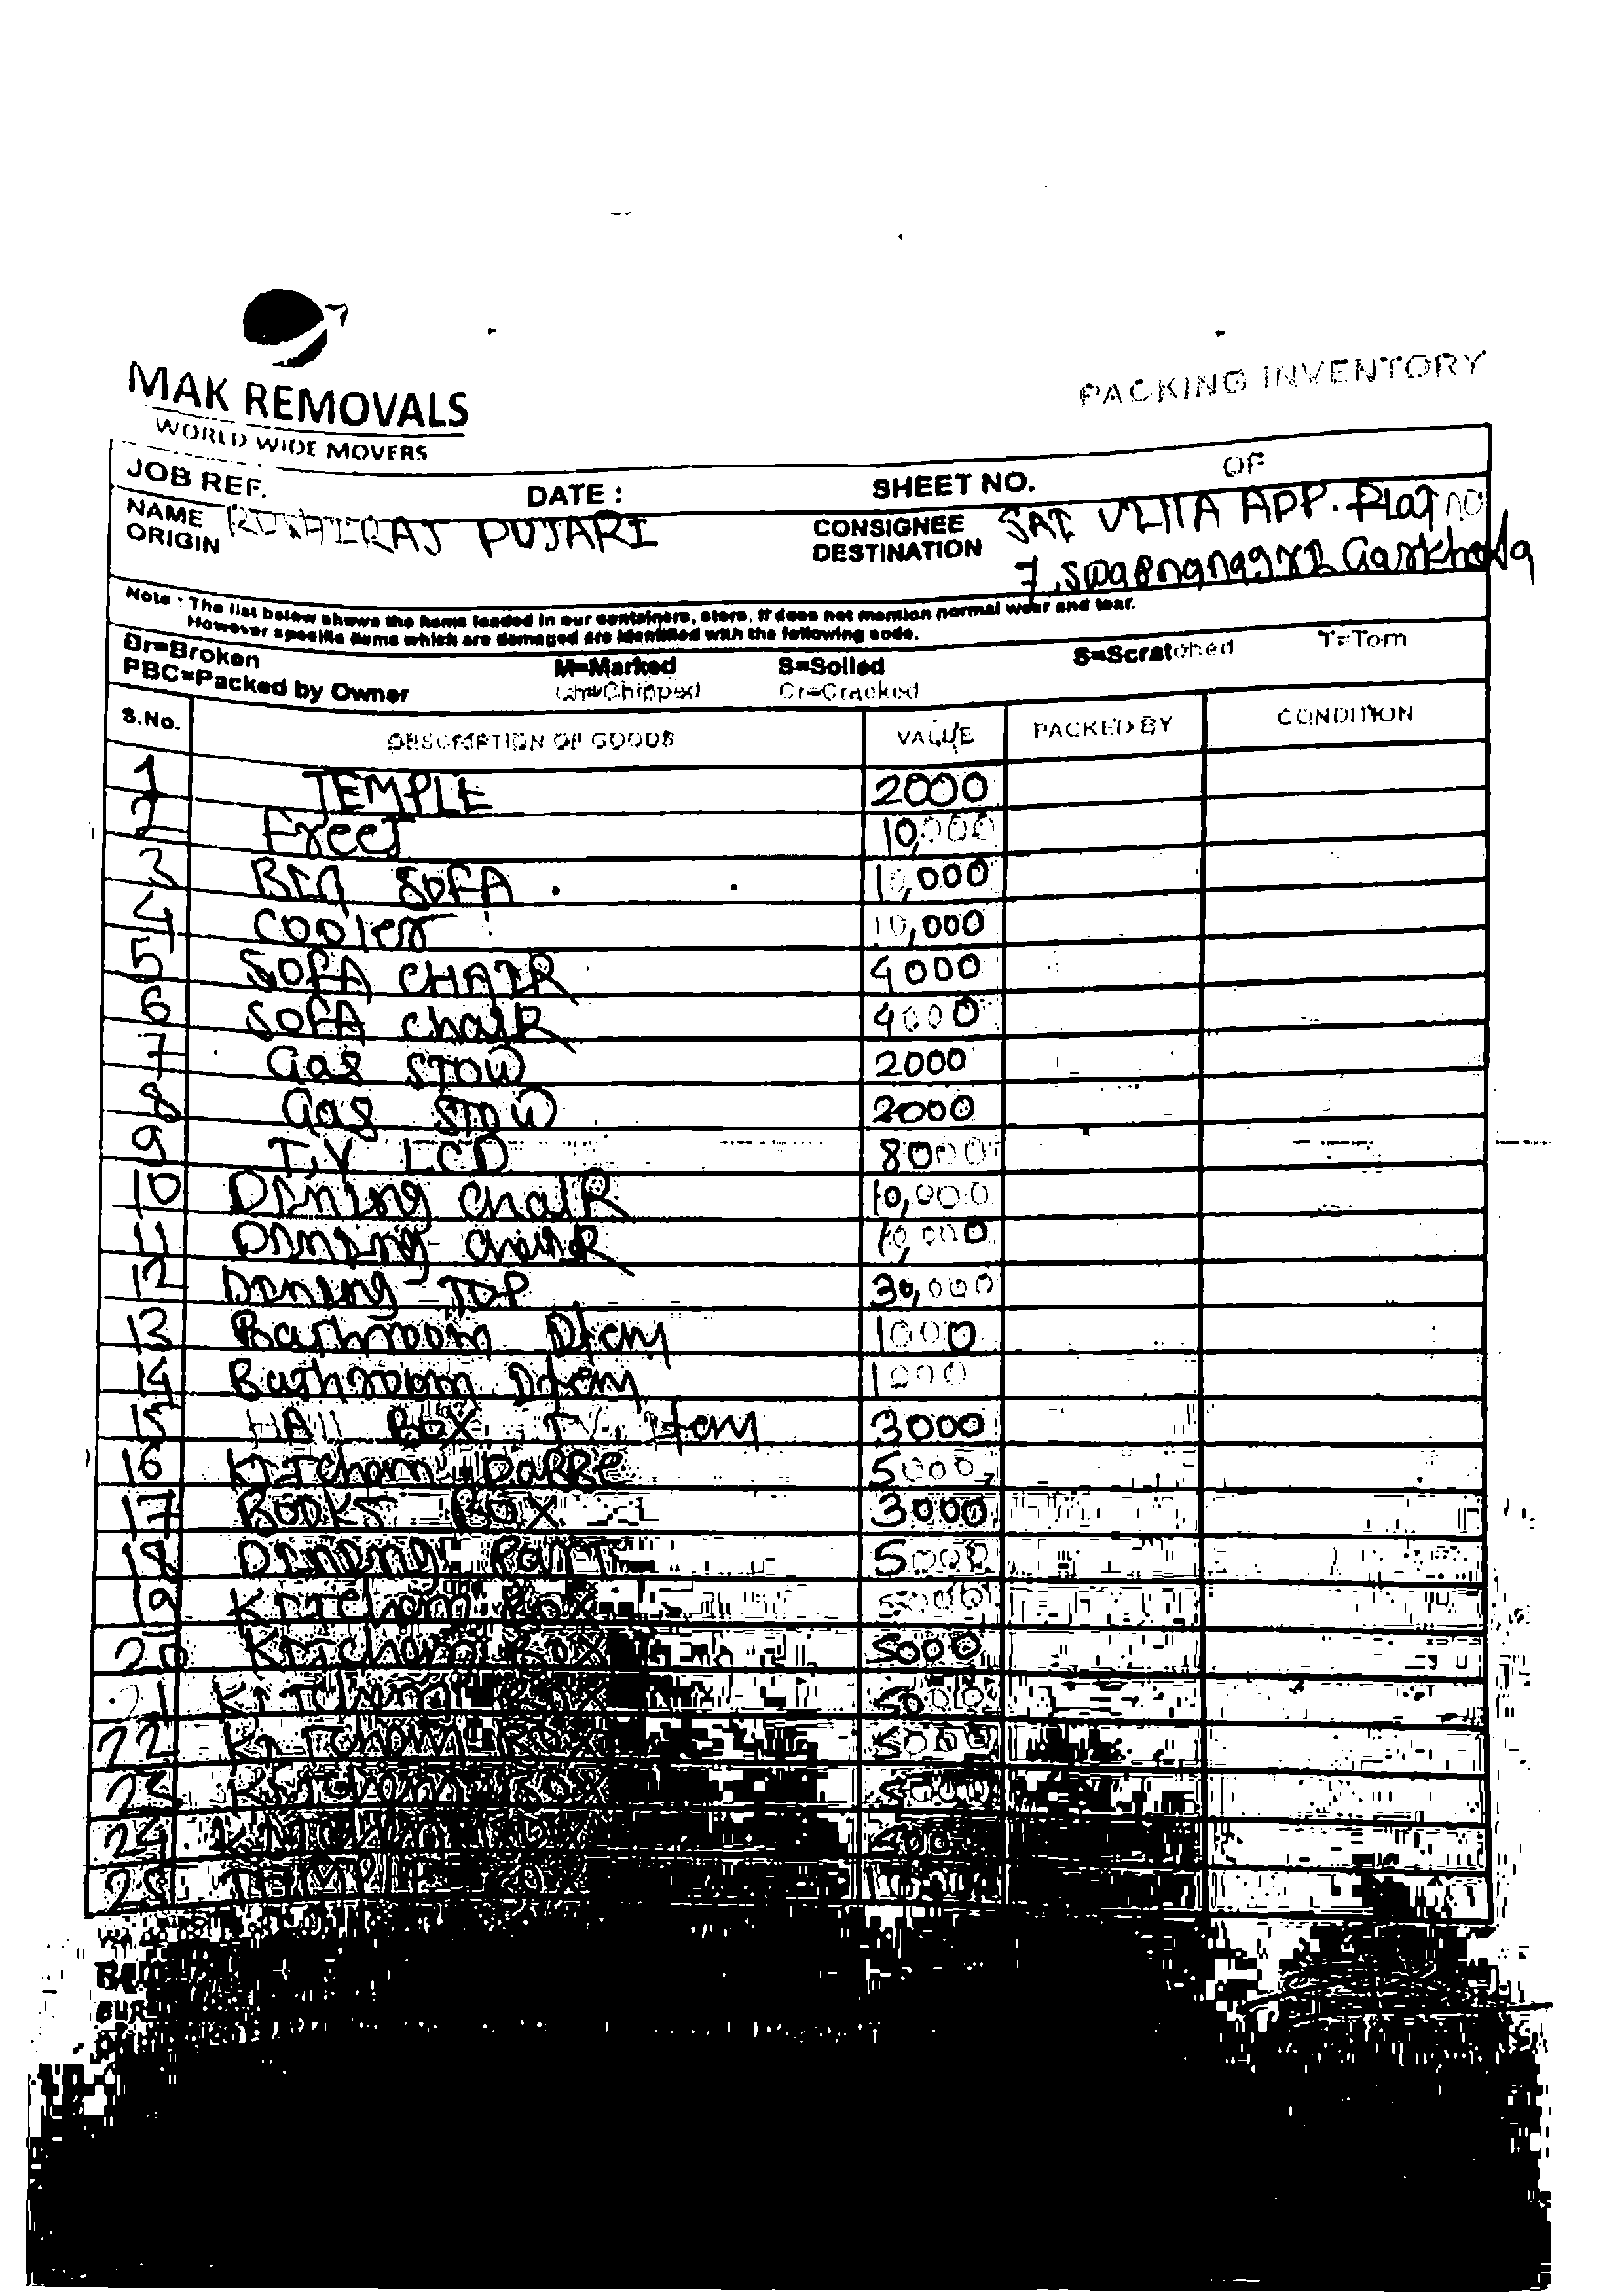 MAK REMOVALS
WORLD WIDE MOVERS
PACKING INVENTORY
JOB REF. DATE : SHEET NO. OF
NAME PUJARI CONSIGNEE SAI APP. Plot no
ORIGIN DESTINATION 7,
Note : The list below shows the items loaded in our containers, store. It does not mention normal wear and tear.
However specific items which are damaged are identified with the following code.
Br=Broken M=Marked S=Soiled S=Scratched T=Torn
PBC=Packed by Owner Ch=Chipped Cr=Cracked
S.No. DESCRIPTION OF GOODS VALUE PACKED BY CONDITION
1 TEMPLE 2000
2 Freej 10,000
3 BIG SOFA 10,000
4 COOler 10,000
5 SOFA CHAIR 4000
6 SOFA chaiR 4000
7 Gas STOW 2000
8 Gas STOW 2000
9 T.V LCD 8000
10 DIning chaIR 10,000
11 DInIng chaiR 10,000
12 DInIng TOP 30,000
13 Bathroom Item 1000
14 Bathroom Item 1000
15 HAll BOX TV. Item 3000
16 KITchan DaBBe 5000
17 BOOKS BOX 3000
18 DInIng PaIT 5000
19 KITchan Box 5000
20 KITchan Box 5000
21 KITchan Box 5000
22 KITchan Box 5000
23 KITchan Box 5000
24 KITchan Box
25 TEMPLE Box